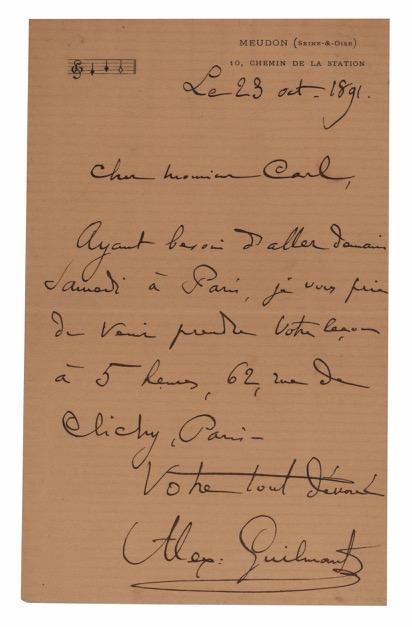 MEUDON (SEINE-&-OISE)
10, CHEMIN DE LA STATION
Le 23 oct - 1891.
Cher Monsieur Carl,
Ayant besoin d'aller demain
Samedi à Paris, je vous prie
de venir prendre votre leçon
à 5 heures, 62, rue de
Clichy, Paris -
Votre tout dévoué
Alex. Guilmant